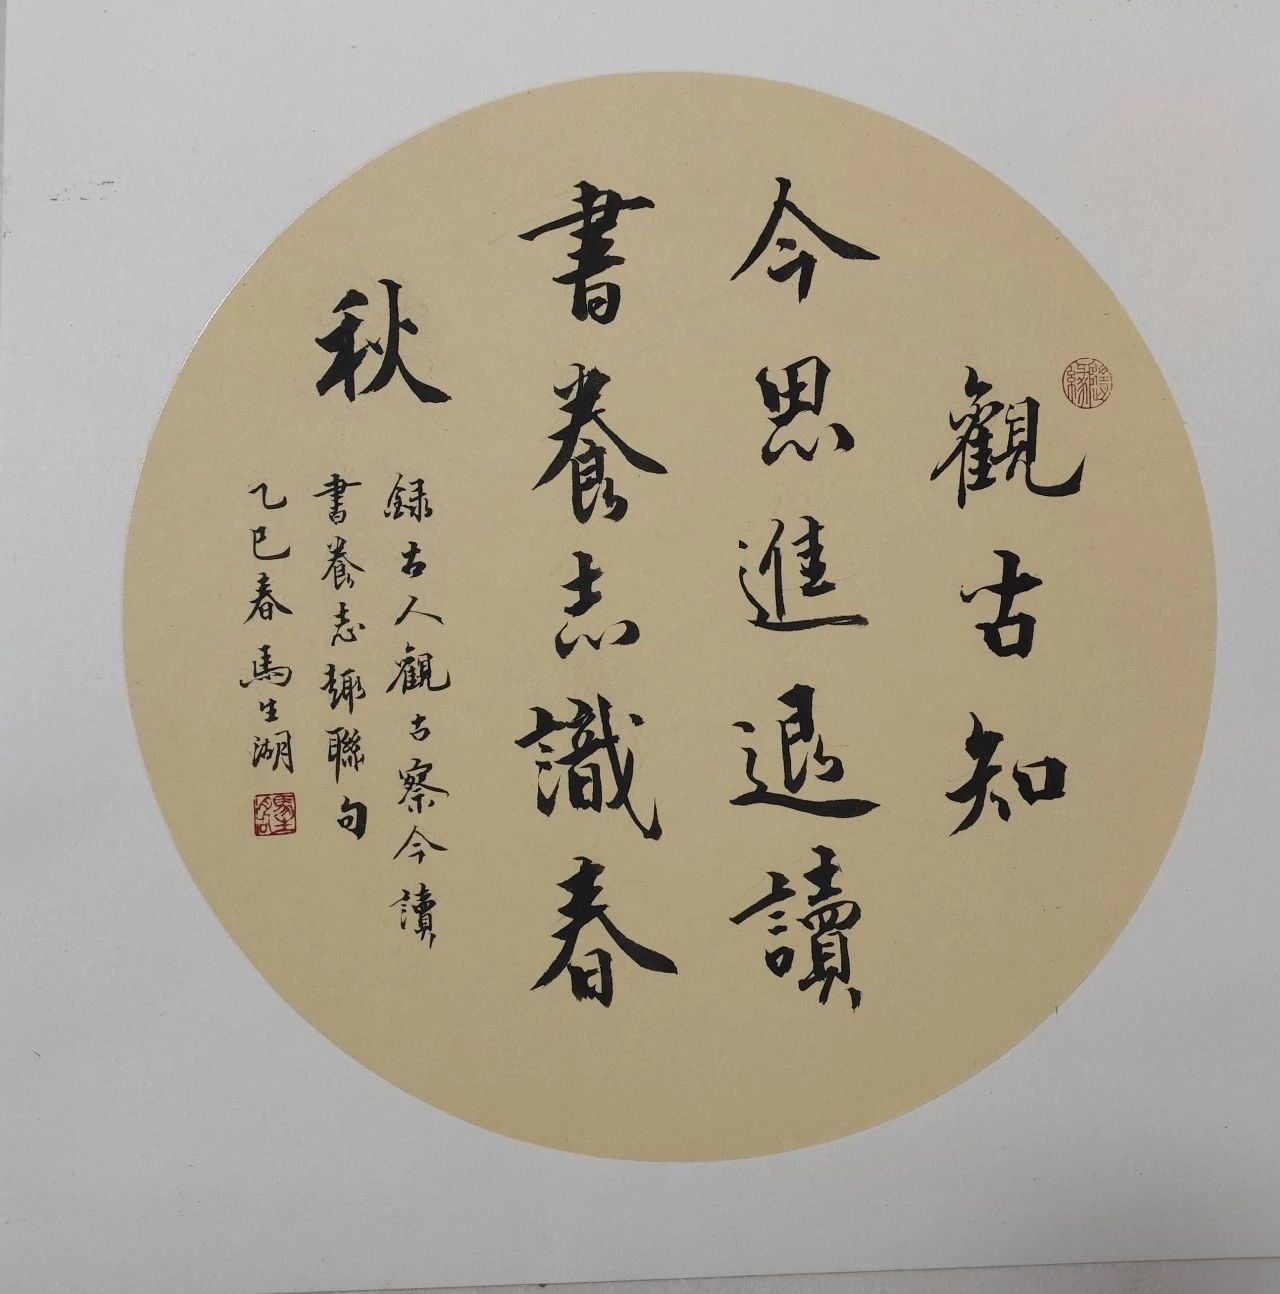 觀古知
今思進退讀
書養志識春
秋
録古人觀古察今讀
書養志趣聯句
乙巳春馬生湖
隨緣